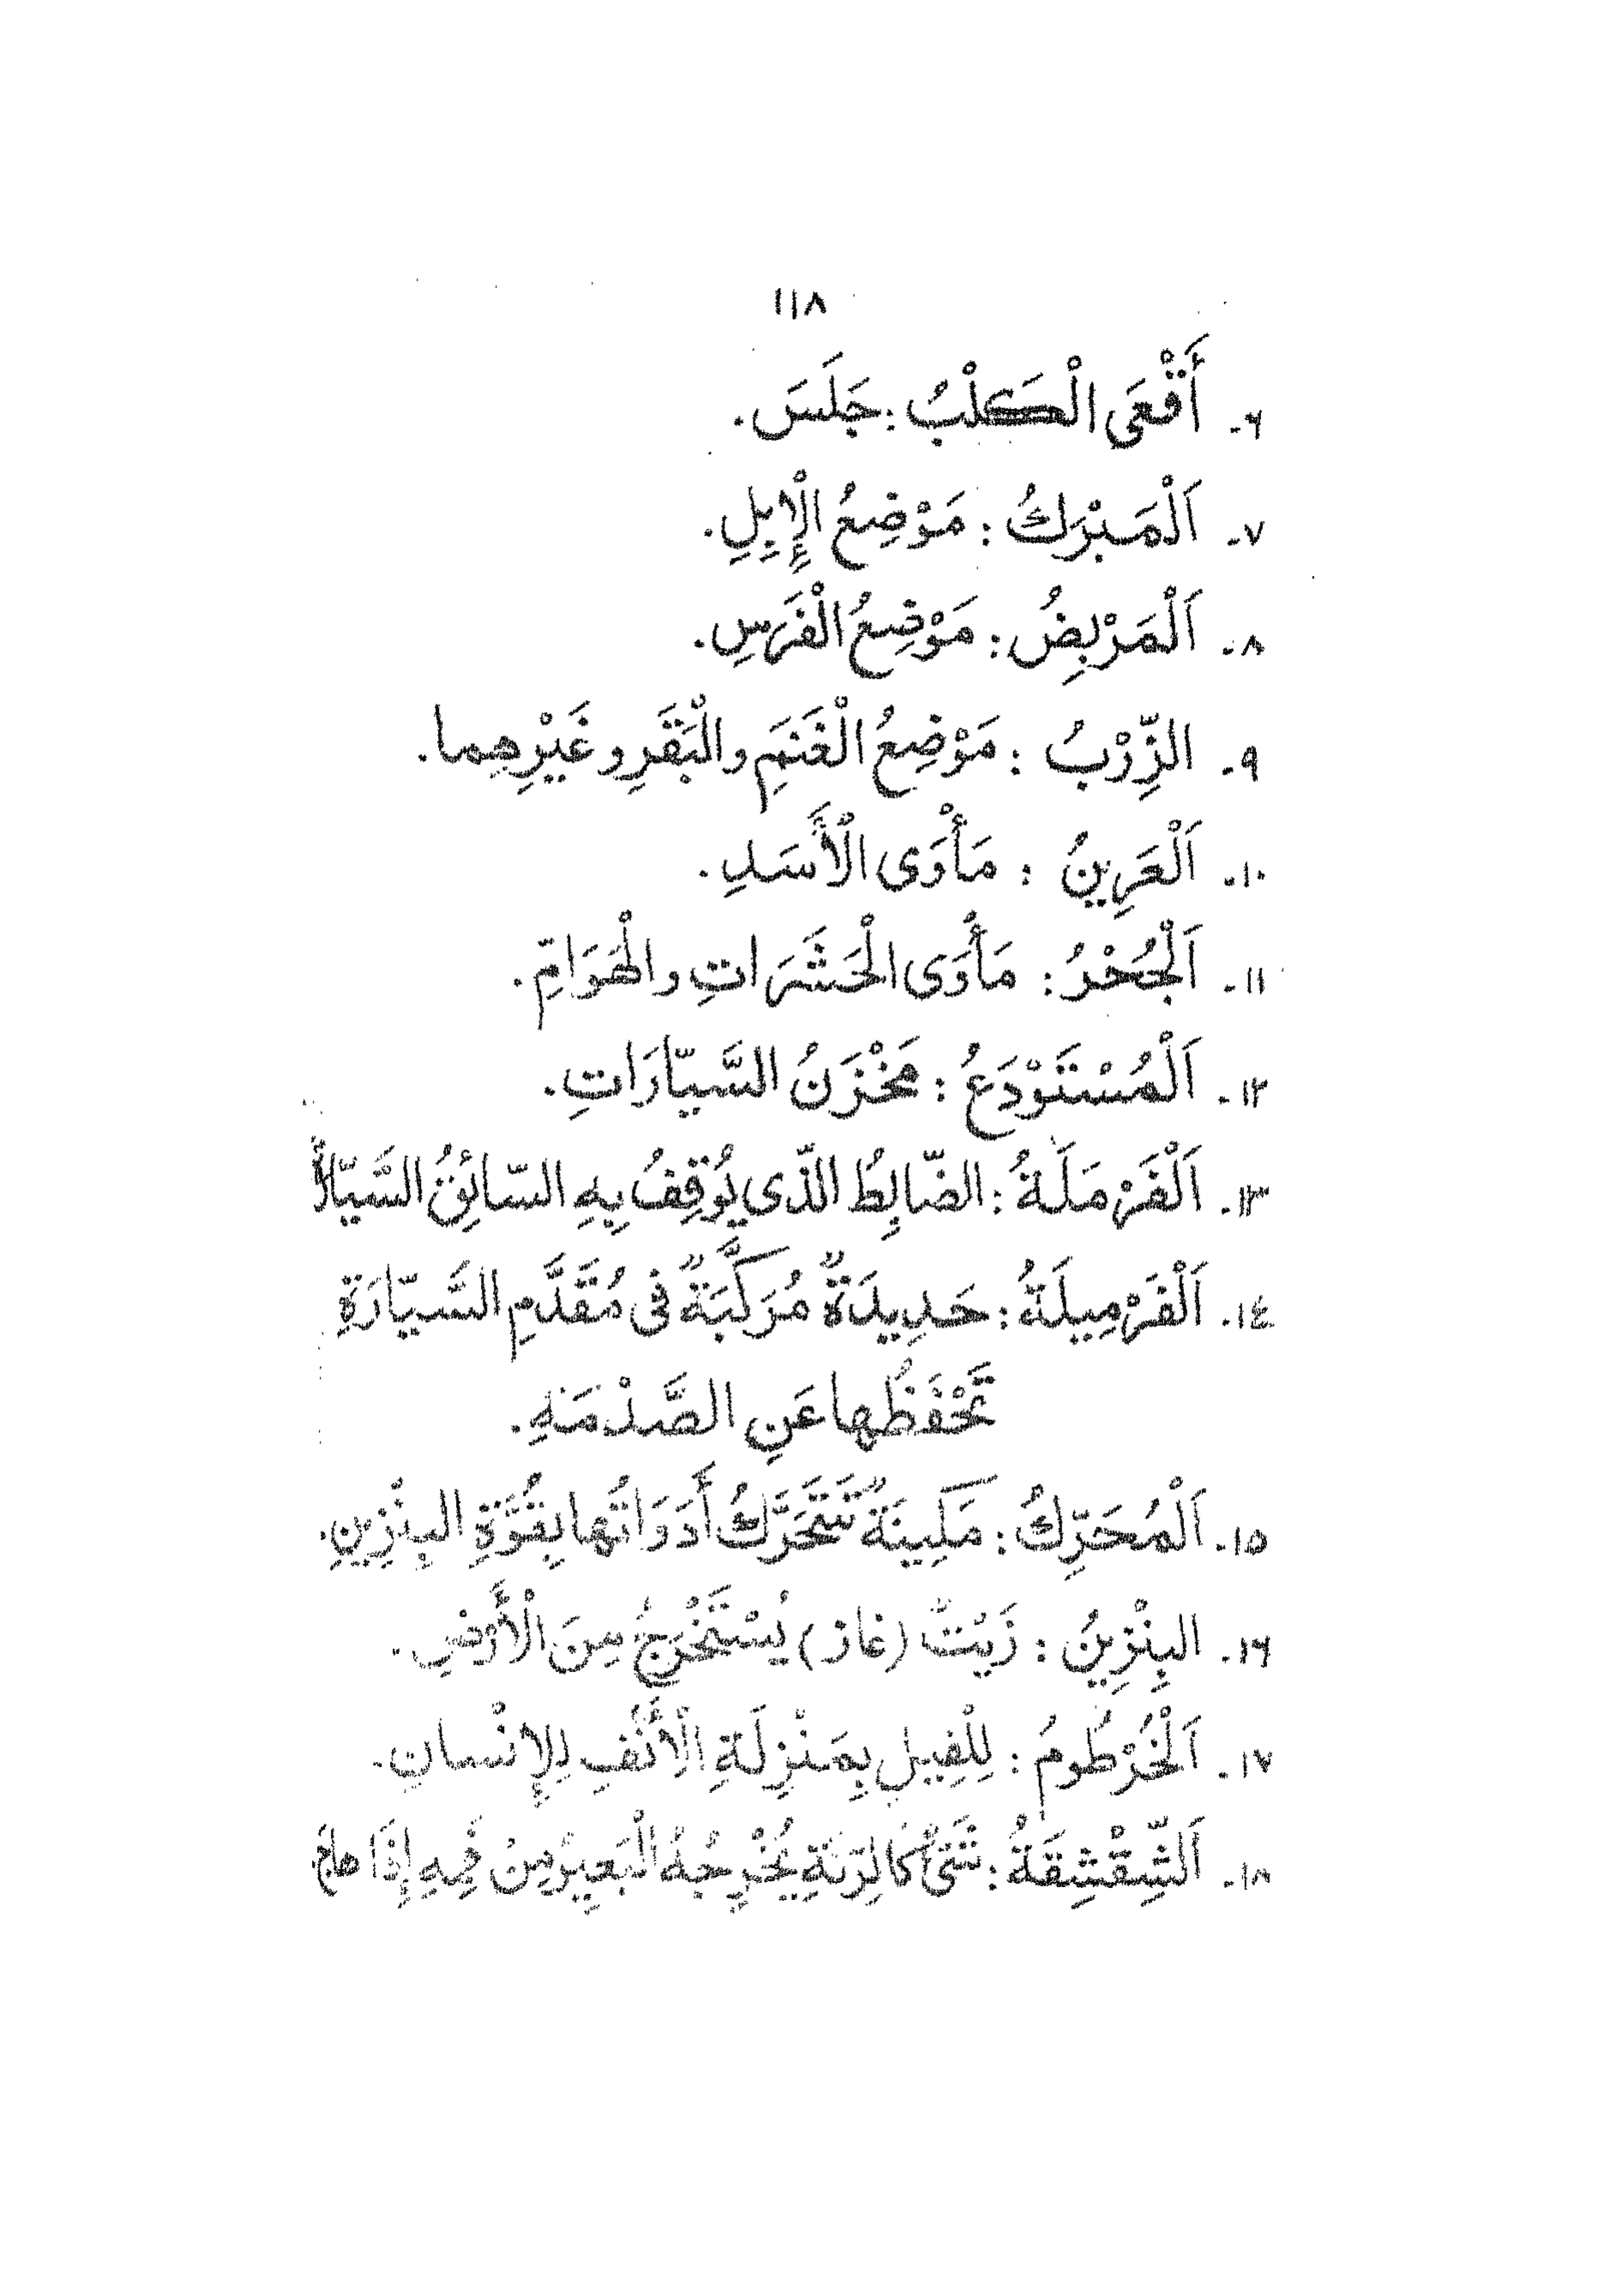 ١١٨
٦- أَقْعَى الْكَلْبُ : جَلَسَ .
٧- اَلْمَبْرَكُ : مَوْضِعُ الْإِبِلِ .
٨- اَلْمَرْبِضُ : مَوْضِعُ الْفَرَسِ .
٩- الزِّرْبُ : مَوْضِعُ الْغَنَمِ والْبَقَرِ و غَيْرِهِما .
١٠- اَلْعَرِينُ : مَأْوَى الْأَسَدِ .
١١- اَلْجُحْرُ : مَأْوَى الْحَشَرَاتِ والْهَوَامِّ .
١٢- اَلْمُسْتَوْدَعُ : مَخْزَنُ السَّيّارَاتِ .
١٣- اَلْفَرْمَلَةُ : الضّابِطُ الّذى يُوقِفُ بِهِ السّائِقُ السَّيّارَةَ
١٤- اَلْفَرْمِيلَةُ : حَدِيدَةٌ مُرَكَّبَةٌ فى مُقَدَّمِ السَّيّارَةِ
تَحْفَظُها عَنِ الصَّدْمَةِ .
١٥- اَلْمُحَرِّكُ : مَكِينَةٌ تَتَحَرَّكُ أَدَوَاتُها بِقُوَّةِ البِنْزِينِ .
١٦- البِنْزِينُ : زَيْتٌ (غاز) يُسْتَخْرَجُ مِنَ الْأَرْضِ .
١٧- اَلْخُرْطُومُ : لِلْفِيلِ بِمَنْزِلَةِ الْأَنْفِ لِلإِنْسانِ .
١٨- اَلشِّقْشِقَةُ : شَىْءٌ كَالرِّئَةِ يُخْرِجُهُ الْبَعِيرُ مِنْ فَمِهِ إِذَا هاجَ